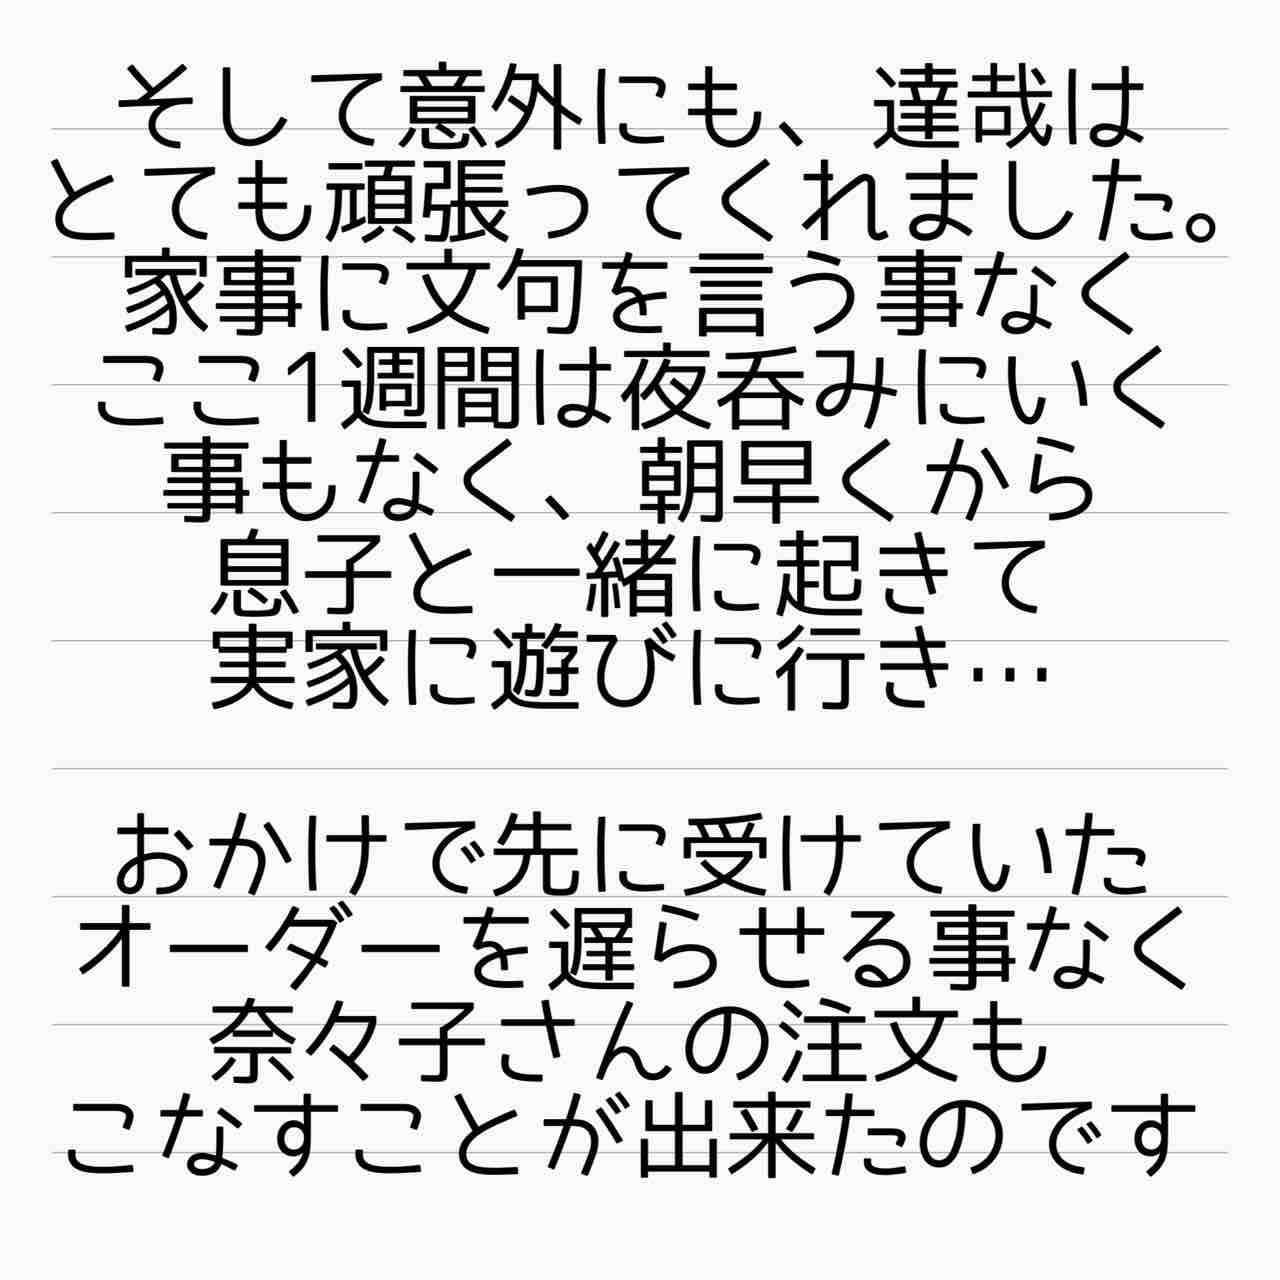 そして意外にも、達哉は
とても頑張ってくれました。
家事に文句を言う事なく
ここ1週間は夜呑みにいく
事もなく、朝早くから
息子と一緒に起きて
実家に遊びに行き…
おかけで先に受けていた
オーダーを遅らせる事なく
奈々子さんの注文も
こなすことが出来たのです